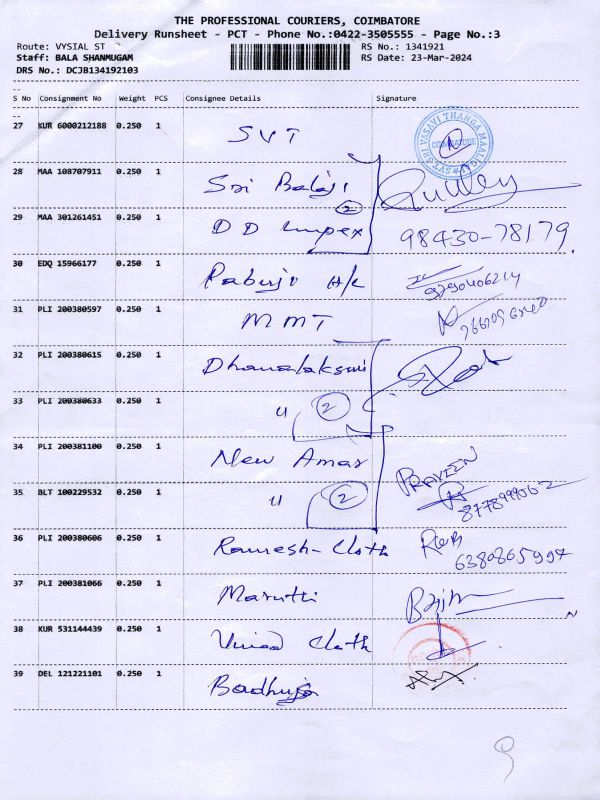 THE PROFESSIONAL COURIERS, COIMBATORE
Delivery Runsheet - PCT - Phone No.:0422-3505555 - Page No.:3
Route: VYSIAL ST RS No.: 1341921
Staff: BALA SHANMUGAM RS Date: 23-Mar-2024
DRS No.: DCJB134192103
S No Consignment No Weight PCS Consignee Details Signature
27 KUR 6000212188 0.250 1 SVT
28 MAA 108707911 0.250 1 Sri Balaji
29 MAA 301261451 0.250 1 DD Impex 2 98430-78179
30 EDQ 15966177 0.250 1 H/L
31 PLI 200380597 0.250 1 MMT
32 PLI 200380615 0.250 1 Dhanalaksmi
33 PLI 200380633 0.250 1 u 2
34 PLI 200381100 0.250 1 New Amar PRAVEEN
35 BLT 100229532 0.250 1 u 2
36 PLI 200380606 0.250 1 Ramesh-Cloth
37 PLI 200381066 0.250 1 Marutti
38 KUR 531144439 0.250 1 Cloth
39 DEL 121221101 0.250 1